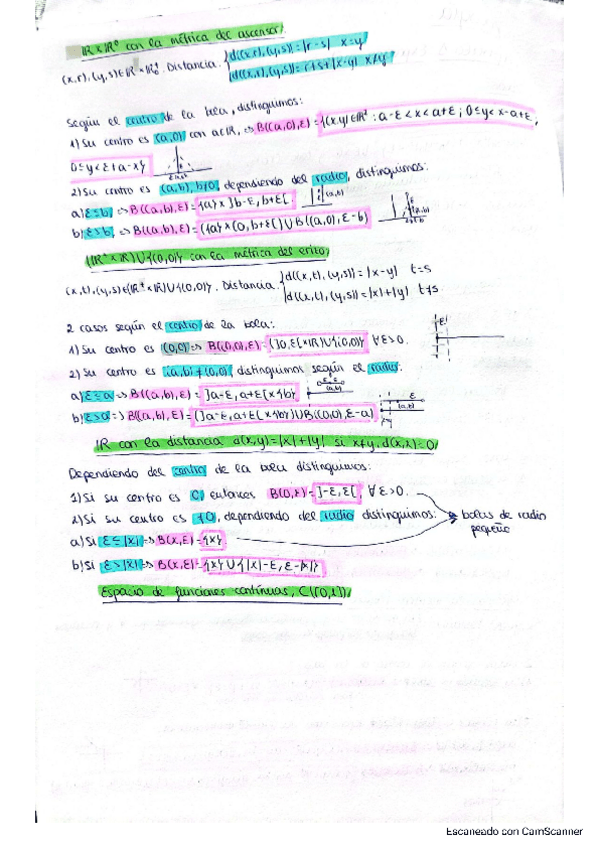 IR x IR⁺₀ con la métrica del ascensor
(x,r),(y,s) ∈ IR x IR⁺₀. Distancia. { d((x,r),(y,s)) = |r-s| x=y
d((x,r),(y,s)) = r+s+|x-y| x≠y
Según el centro de la bola, distinguimos:
1) Su centro es (a,0) con a∈IR, => B((a,0),ε) = {(x,y)∈IR² : a-ε<x<a+ε; 0≤y<x-a+ε,
0≤y<ε+a-x}
2) Su centro es (a,b), b≠0, dependiendo del radio, distinguimos:
a) ε≤b, => B((a,b),ε) = {a}x]b-ε,b+ε[.
b) ε>b, => B((a,b),ε) = ({a}x[0,b+ε[)∪B((a,0),ε-b)
(IR⁺xIR)∪{(0,0)} con la métrica del erizo
(x,t),(y,s)∈(IR⁺xIR)∪{(0,0)}. Distancia. { d((x,t),(y,s)) = |x-y| t=s
d((x,t),(y,s)) = |x|+|y| t≠s
2 casos según el centro de la bola:
1) Su centro es (0,0) => B((0,0),ε) = (]0,ε[xIR)∪{(0,0)} ∀ε>0.
2) Su centro es (a,b)≠(0,0), distinguimos según el radio.
a) ε≤a => B((a,b),ε) = ]a-ε,a+ε[x{b}
b) ε>a => B((a,b),ε) = (]a-ε,a+ε[x{b})∪B((0,0),ε-a)
IR con la distancia d(x,y)=|x|+|y| si x≠y, d(x,x)=0
Dependiendo del centro de la bola distinguimos:
1) Si su centro es 0, entonces B(0,ε) = ]-ε,ε[, ∀ε>0.
2) Si su centro es ≠0, dependiendo del radio distinguimos:
bolas de radio
pequeño
a) Si ε≤|x| => B(x,ε) = {x}
b) Si ε>|x| => B(x,ε) = {x}∪]|x|-ε,ε-|x|[
Espacio de funciones continuas, C([0,1])
Escaneado con CamScanner